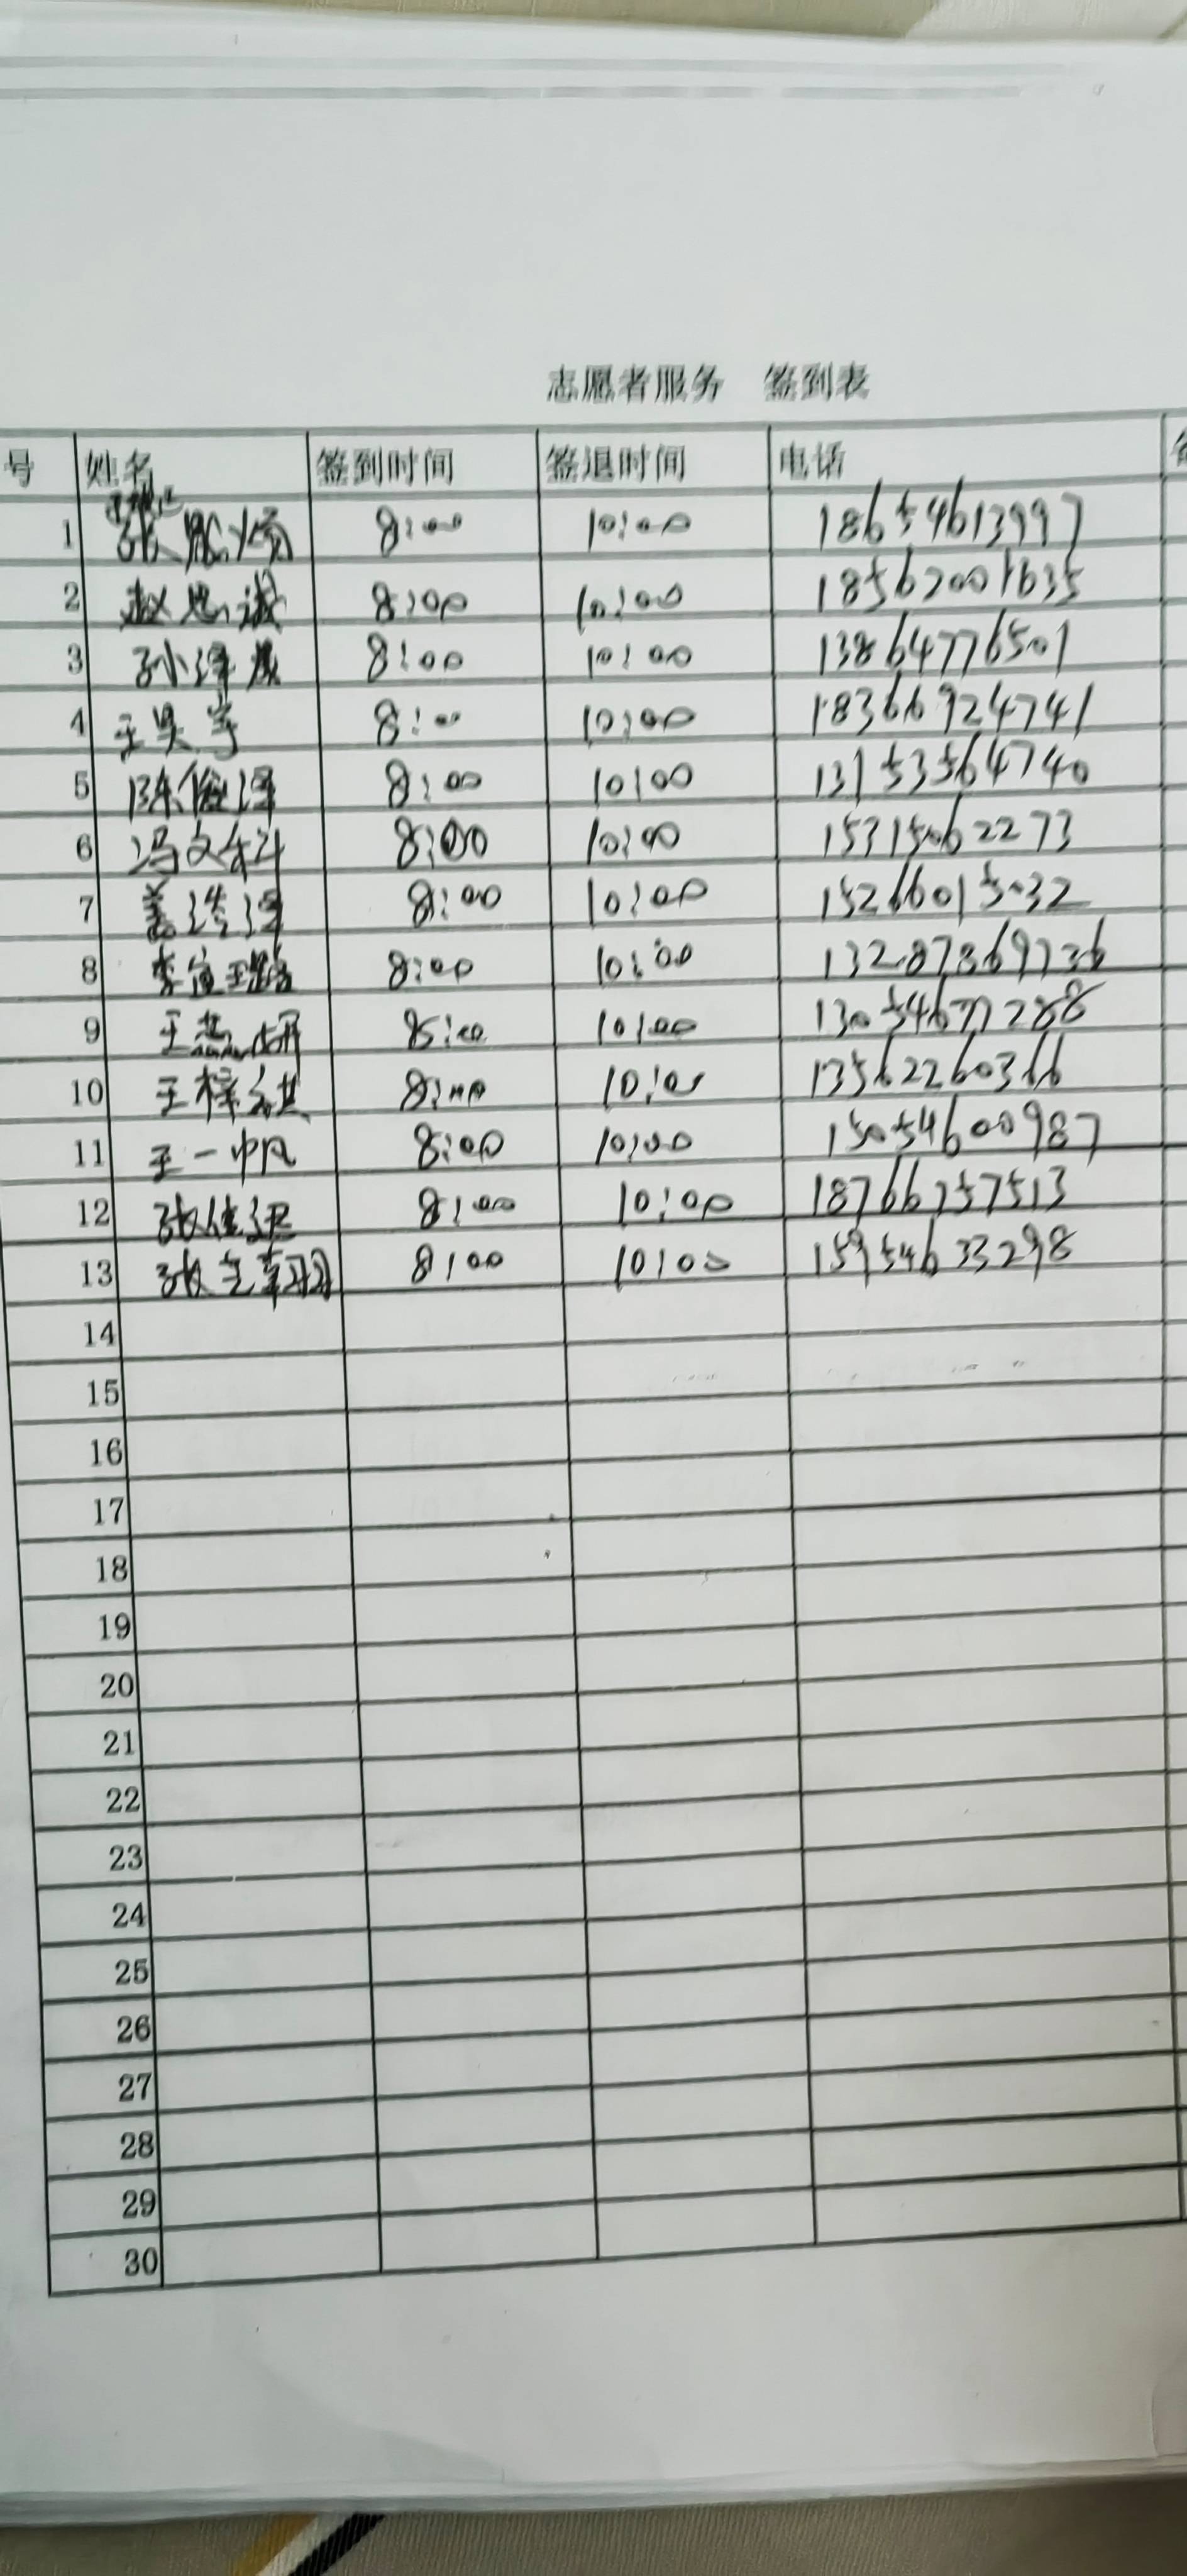 志愿者服务 签到表
号 姓名 签到时间 签退时间 电话
1 张 8:00 10:00 18654613997
2 赵思诚 8:00 10:00 18562001635
3 孙泽 8:00 10:00 13864776501
4 王昊宇 8:00 10:00 18366924741
5 陈俊泽 8:00 10:00 13153564740
6 冯文轩 8:00 10:00 15315062273
7 盖浩泽 8:00 10:00 15266015032
8 李宜璐 8:00 10:00 13287869736
9 王燕妍 8:00 10:00 13054677288
10 王梓 8:00 10:00 13562260366
11 王一帆 8:00 10:00 15054600987
12 张 8:00 10:00 18766757513
13 张 8:00 10:00 15954633298
14
15
16
17
18
19
20
21
22
23
24
25
26
27
28
29
30